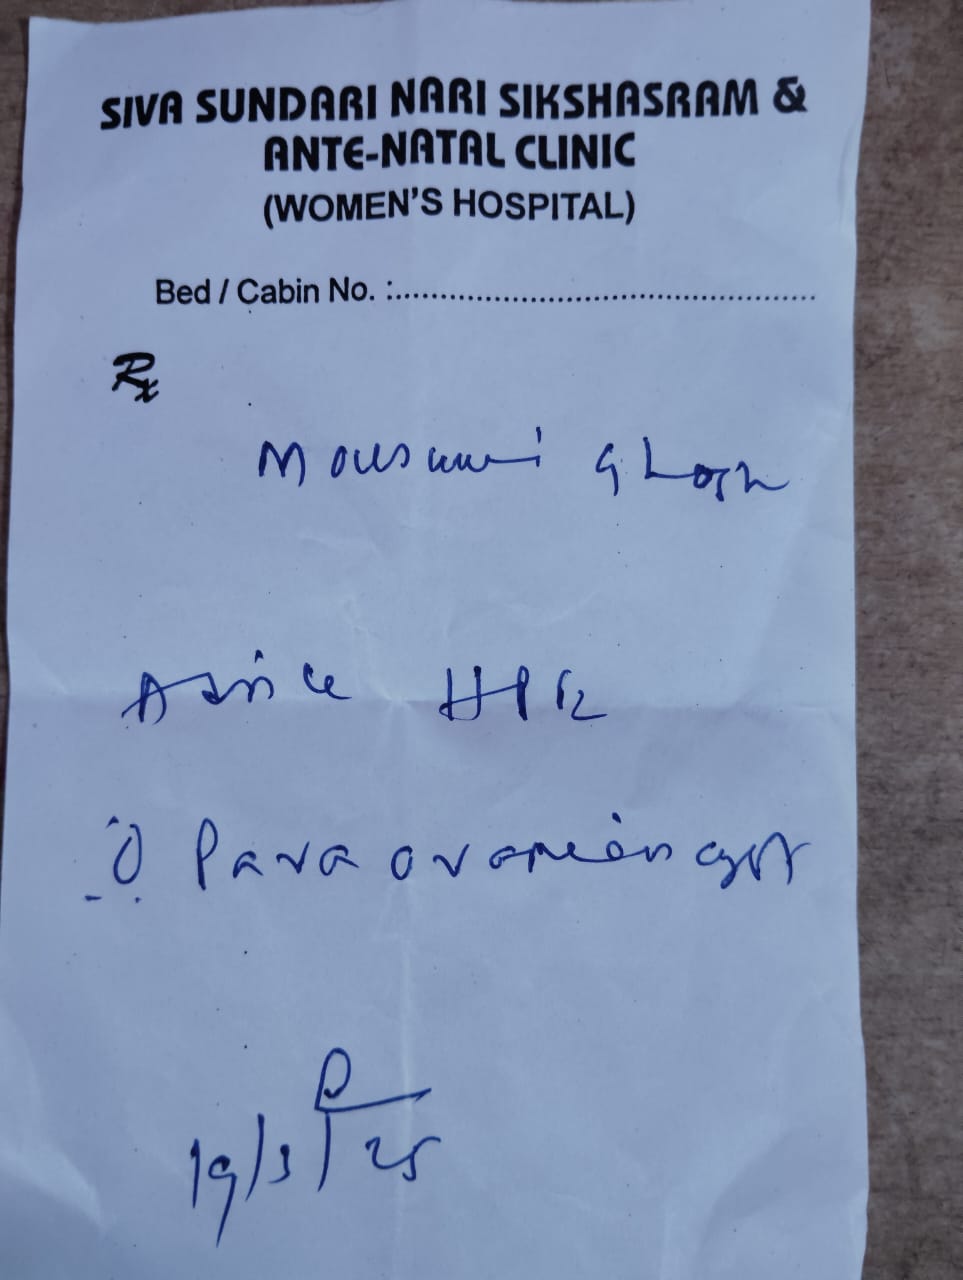 SIVA SUNDARI NARI SIKSHASRAM &
ANTE-NATAL CLINIC
(WOMEN'S HOSPITAL)
Bed / Cabin No. :..........................................................
Rx
Mousumi Ghosh
Advice HPE
Para ovarian cyst
19/3/25